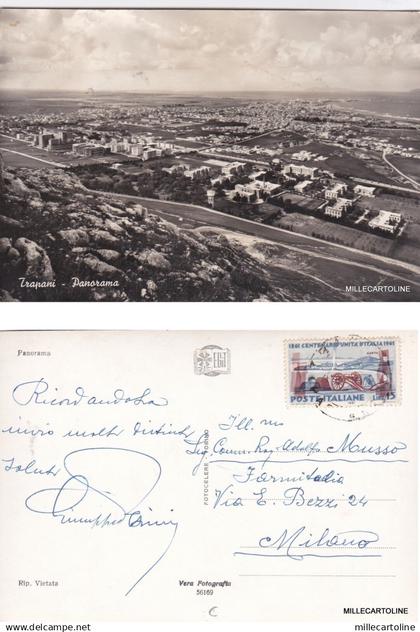 MILLECARTOLINE
Trapani - Panorama
MILLECARTOLINE
Panorama
1861 CENTENARIO UNITA' D'ITALIA 1961
GAETA
LIRE 15
POSTE ITALIANE
Ricordandola
invio molti distinti
Saluti
Ill. mo
Sig. Comm. Rag. Adolfo Musso
Farmitalia
Via E. Bezzi 24
Milano
FOTOCELERE TORINO
Rip. Vietata
Vera Fotografia
56169
MILLECARTOLINE
millecartoline.com
millecartoline.com